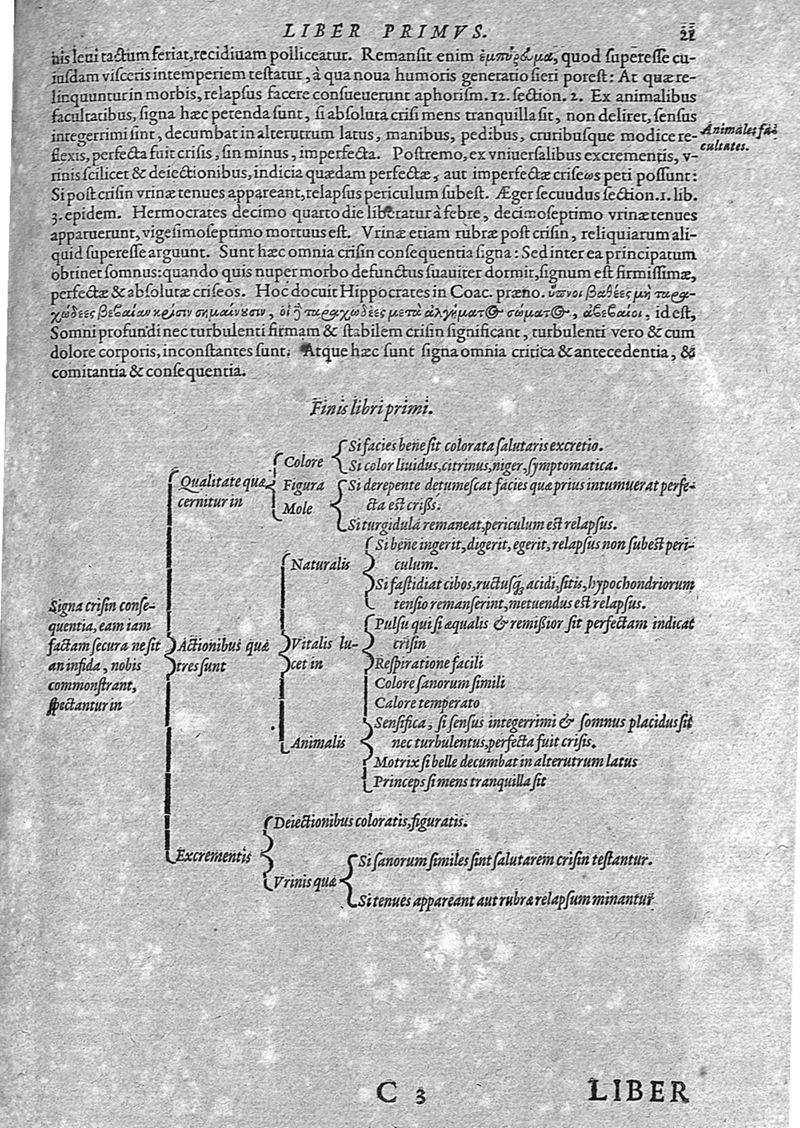 LIBER PRIMVS.
21
nis leui tactum feriat, recidiuam polliceatur. Remansit enim ἐμπύρωμα, quod superesse cu-
iusdam visceris intemperiem testatur, à qua noua humoris generatio fieri potest: At quæ re-
linquuntur in morbis, relapsus facere consueuerunt aphorism. 12. section. 2. Ex animalibus
facultatibus, signa hæc petenda sunt, si absoluta crisi mens tranquilla sit, non deliret, sensus
integerrimi sint, decumbat in alterutrum latus, manibus, pedibus, cruribusque modice re-
Animales fa-
cultates.
flexis, perfecta fuit crisis, sin minus, imperfecta. Postremo, ex vniuersalibus excrementis, v-
rinis scilicet & deiectionibus, indicia quædam perfectæ, aut imperfectæ criseωs peti possunt:
Si post crisin vrinæ tenues appareant, relapsus periculum subest. Æger secuudus section. 1. lib.
3. epidem. Hermocrates decimo quarto die liberatur à febre, decimoseptimo vrinæ tenues
apparuerunt, vigesimoseptimo mortuus est. Vrinæ etiam rubræ post crisin, reliquiarum ali-
quid superesse arguunt. Sunt hæc omnia crisin consequentia signa: Sed inter ea principatum
obtinet somnus: quando quis nuper morbo defunctus suauiter dormit, signum est firmissimæ,
perfectæ & absolutæ criseos. Hoc docuit Hippocrates in Coac. præno. ὕπνοι βαθέες μὴ ταρα-
χώδεες βεβαίαν κρίσιν σημαίνουσιν, οἱ ἢ ταραχώδεες μετὰ ἀλγήματος σώματος, ἀβέβαιοι, id est,
Somni profundi nec turbulenti firmam & stabilem crisin significant, turbulenti vero & cum
dolore corporis, inconstantes sunt. Atque hæc sunt signa omnia critica & antecedentia, &
comitantia & consequentia.
Finis libri primi.
Signa crisin conse-
quentia, eam iam
factam secura ne sit
an infida, nobis
commonstrant,
spectantur in
Qualitate quæ
cernitur in
Colore
Si facies bene sit colorata salutaris excretio.
Si color liuidus, citrinus, niger, symptomatica.
Figura
Mole
Si derepente detumescat facies quæ prius intumuerat perfe-
cta est crisis.
Si turgidula remaneat, periculum est relapsus.
Actionibus quæ
tres sunt
Naturalis
Si bene ingerit, digerit, egerit, relapsus non subest peri-
culum.
Si fastidiat cibos, ructusq́, acidi, sitis, hypochondriorum
tensio remanserint, metuendus est relapsus.
Vitalis lu-
cet in
Pulsu qui si æqualis & remissior sit perfectam indicat
crisin
Respiratione facili
Colore sanorum simili
Calore temperato
Animalis
Sensifica, si sensus integerrimi & somnus placidus sit
nec turbulentus, perfecta fuit crisis.
Motrix si belle decumbat in alterutrum latus
Princeps si mens tranquilla sit
Excrementis
Deiectionibus coloratis, figuratis.
Vrinis quæ
Si sanorum similes sint salutarem crisin testantur.
Si tenues appareant aut rubræ relapsum minantur
C 3
LIBER